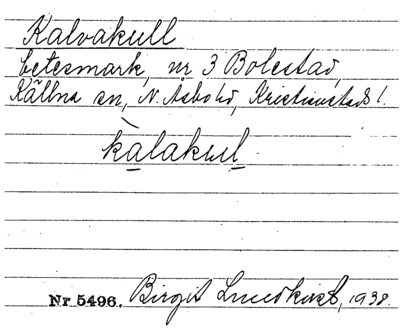 Kalvakull
betesmark, nr 3 Bolestad,
Källna sn, N. Åsbo hd, Kristianstads l.
kàlakul
Nr 5496. Birgit Lundkvist, 1938.